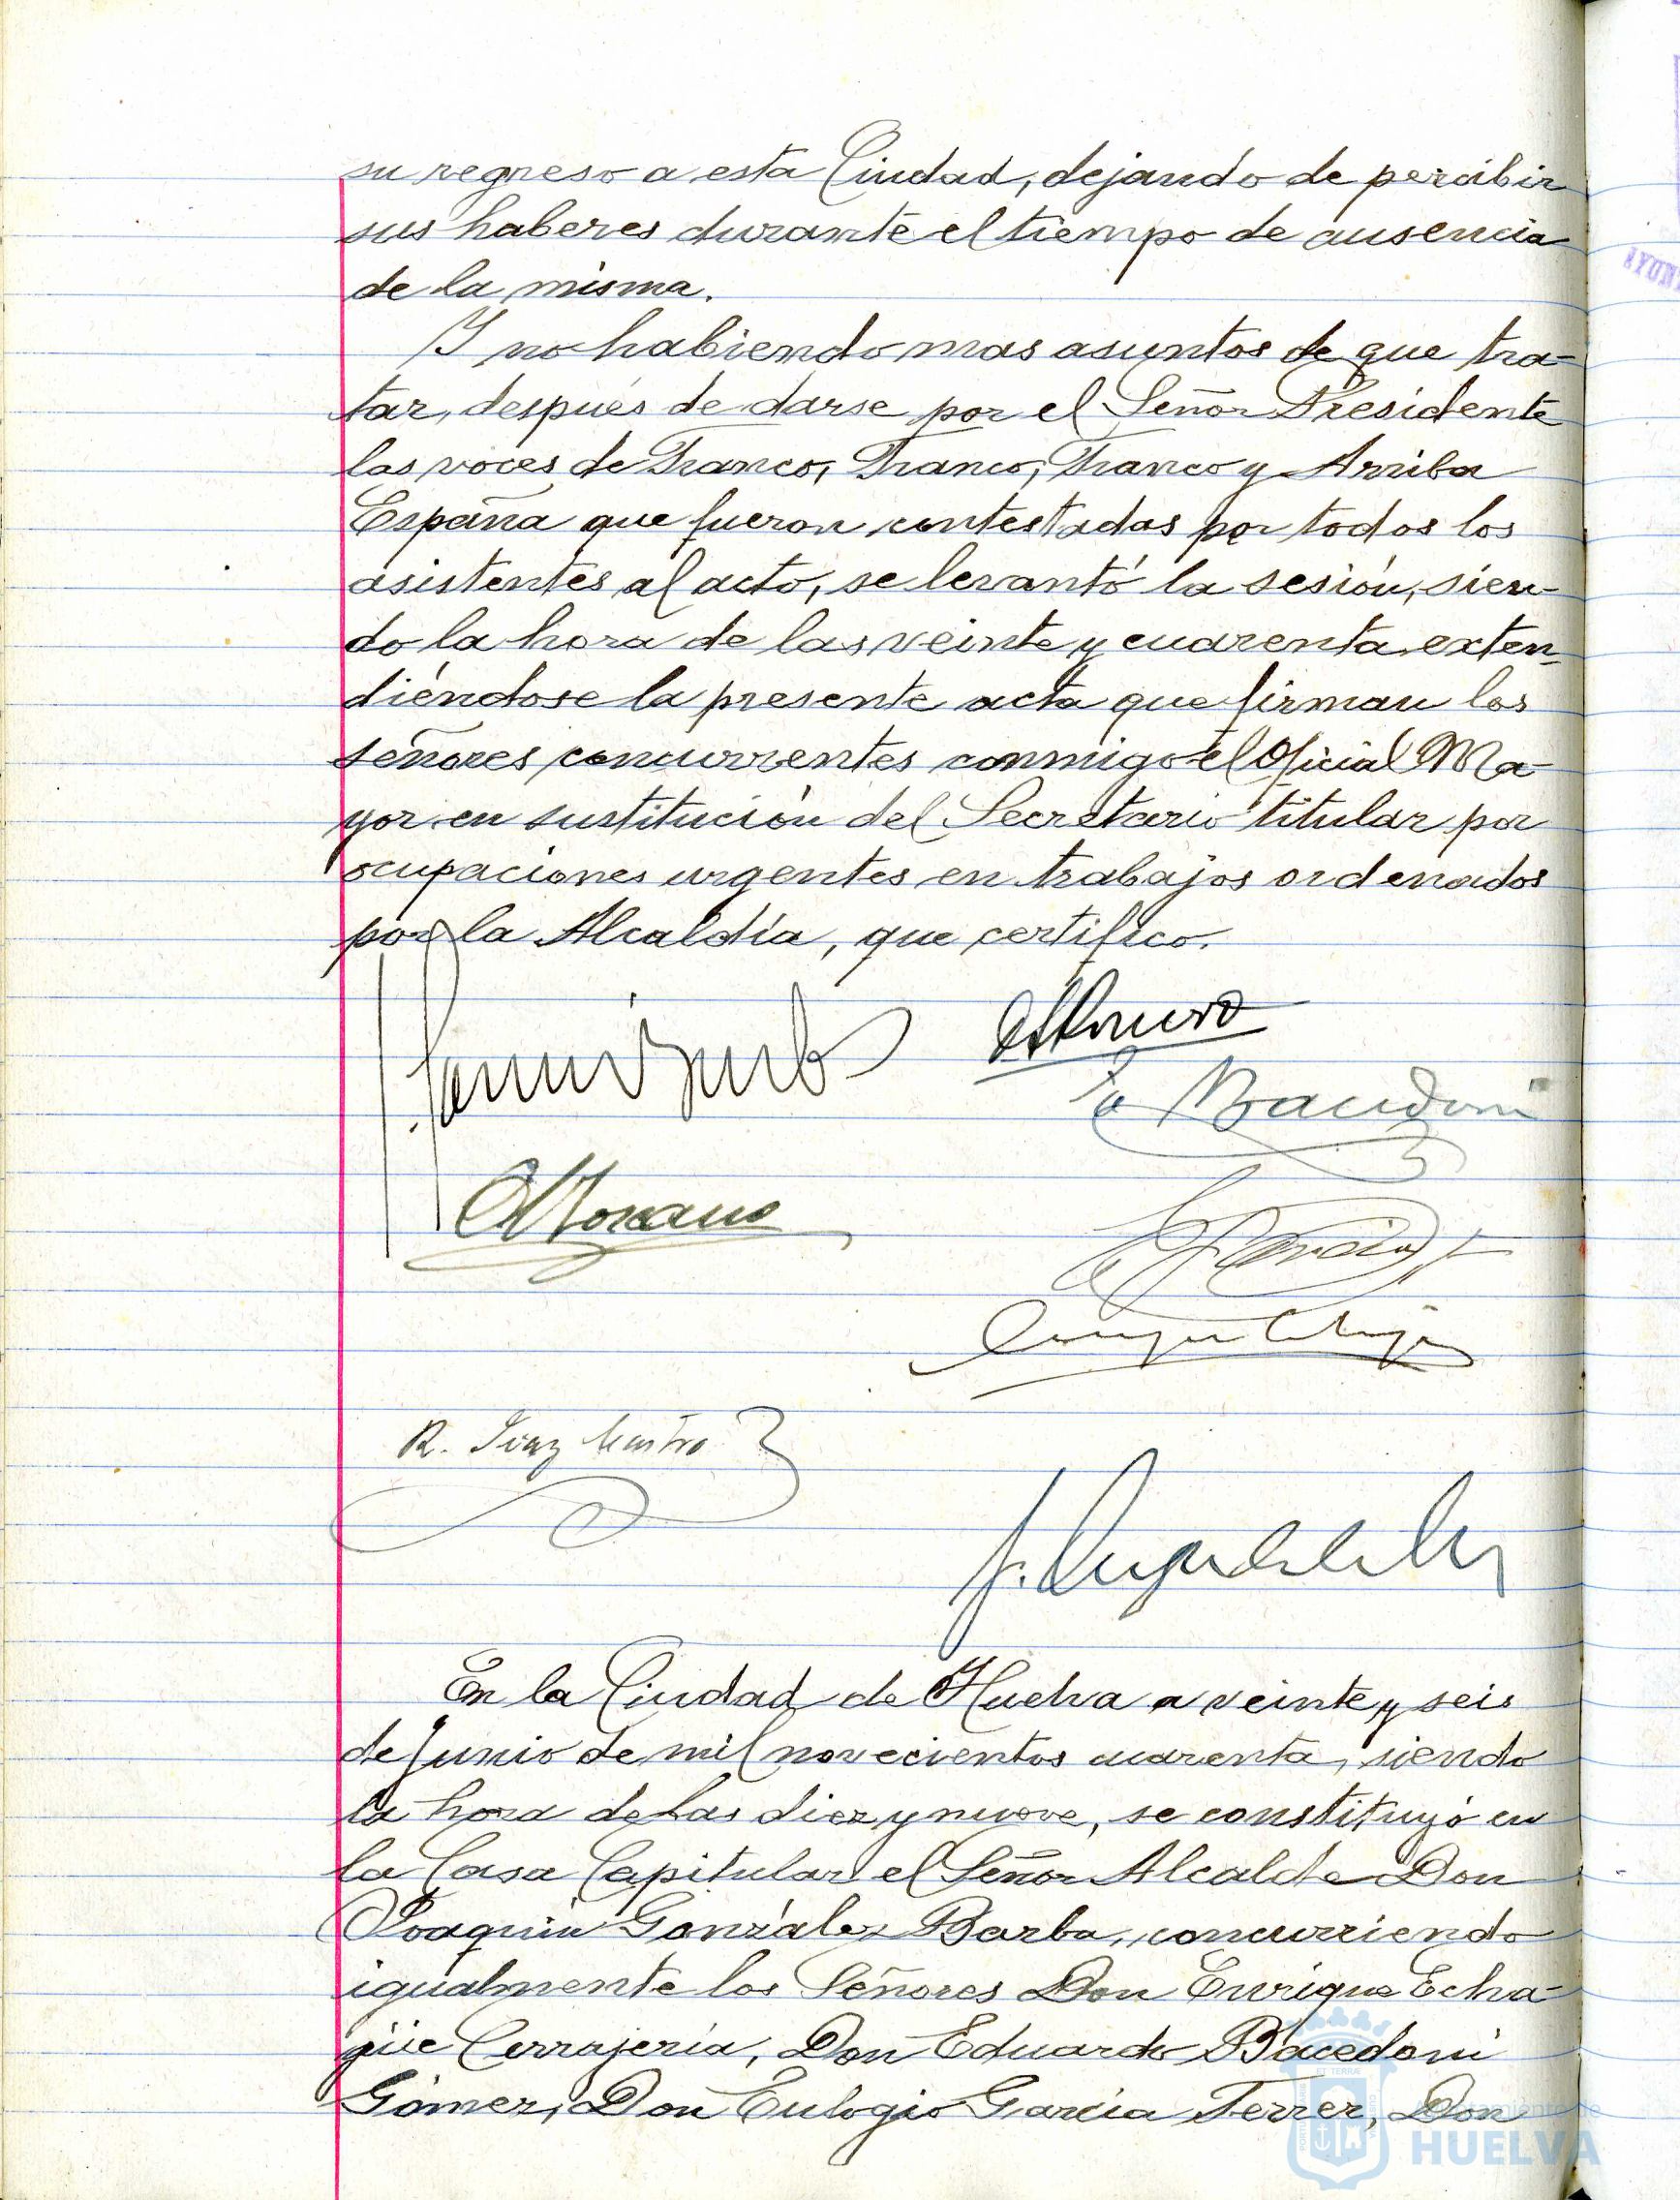 su regreso a esta Ciudad, dejando de percibir
sus haberes durante el tiempo de ausencia
de la misma.
Y no habiendo mas asuntos de que tra-
tar, después de darse por el Señor Presidente
las voces de Franco, Franco, Franco y Arriba
España que fueron contestadas por todos los
asistentes al acto, se levantó la sesión, sien-
do la hora de las veinte y cuarenta, exten-
diéndose la presente acta que firman los
señores concurrentes conmigo el Oficial Ma-
yor en sustitución del Secretario titular por
ocupaciones urgentes en trabajos ordenados
por la Alcaldía, que certifico.
R. Diaz
En la Ciudad de Huelva a veinte y seis
de Junio de mil novecientos cuarenta, siendo
la hora de las diez y nueve, se constituyó en
la Casa Capitular el Señor Alcalde Don
Joaquín González Barba, concurriendo
igualmente los Señores Don Enrique Echa-
güe Cerrajería, Don Eduardo Bacedoni
Gómez, Don Eulogio García Ferrer, Don
Ayuntamiento de
HUELVA